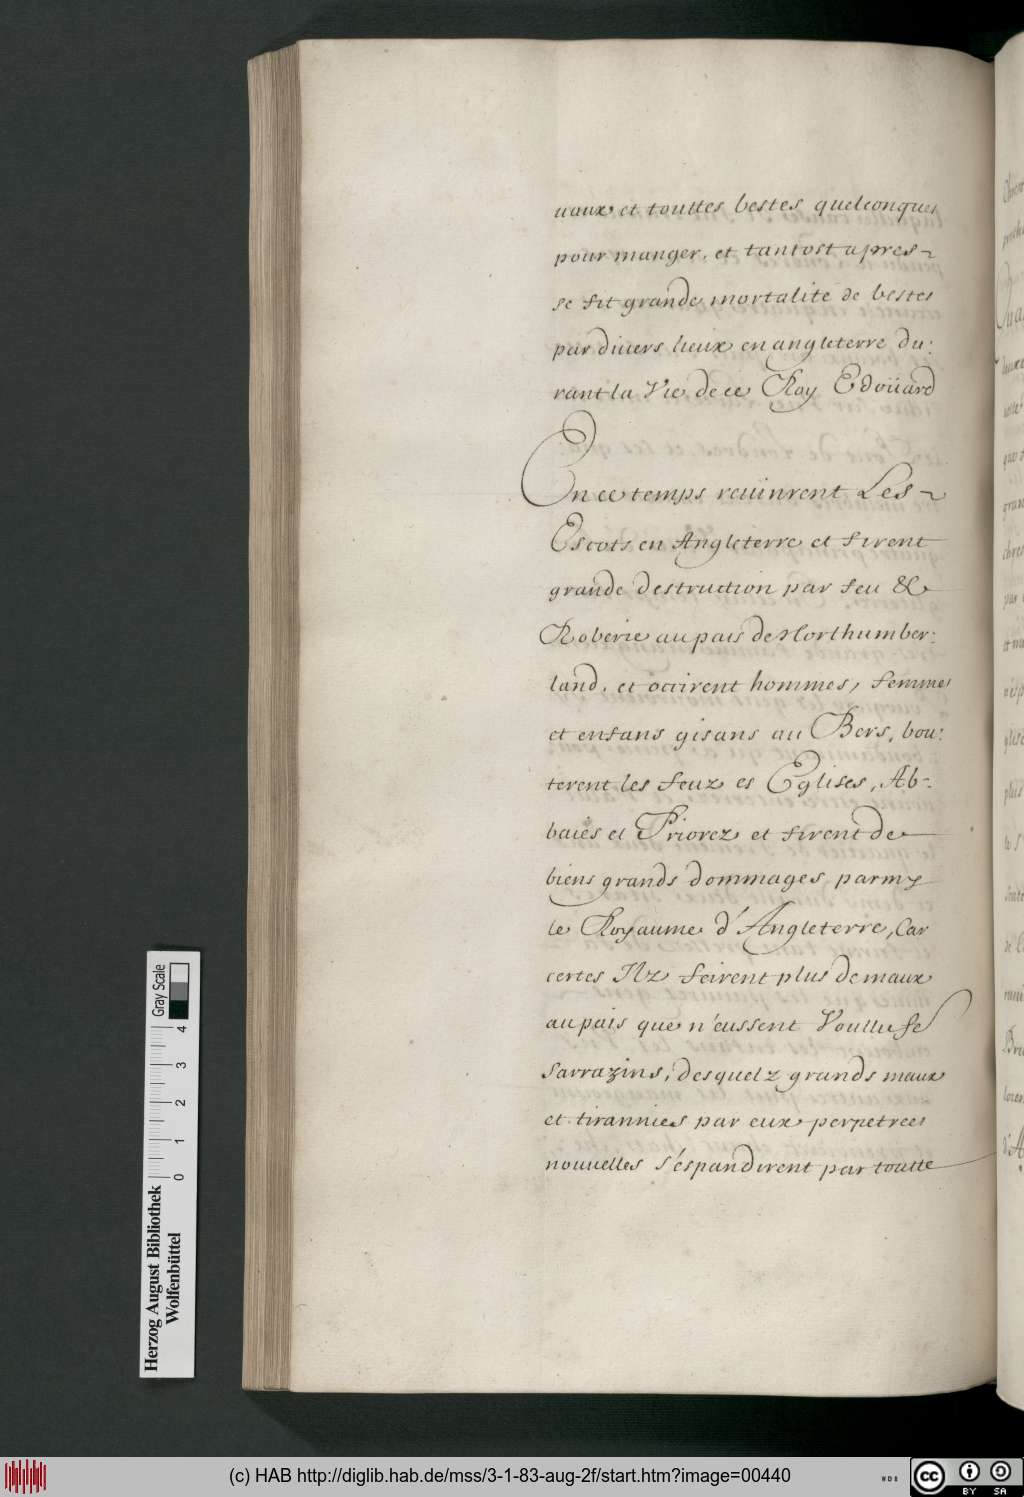 uaux et touttes bestes quelconques
pour manger, et tantost apres~
se fit grande mortalité de bestes
par diuers lieux en angleterre du:
rant la Vie de ce Roy Edoüard
En ce temps reuinrent Les~
Escots en Angleterre et firent
grande destruction par feu &
Roberie au pais de Northumber:
land, et occirent hommes, femmes
et enfans gisans au Bers, bou:
terent les feuz es Eglises, Ab-
baies et Priorez et firent de
biens grands dommages parmy
le Royaume d'Angleterre, Car
certes Ilz feirent plus de maux
au pais que n'eussent Voullu fe
Sarrazins, desquelz grands maux
et tirannies par eux perpetrees
nouuelles s'éspandirent par toutte
Herzog August Bibliothek
Wolfenbüttel
Gray Scale
0 1 2 3 4
(c) HAB http://diglib.hab.de/mss/3-1-83-aug-2f/start.htm?image=00440
WDB
cc BY SA